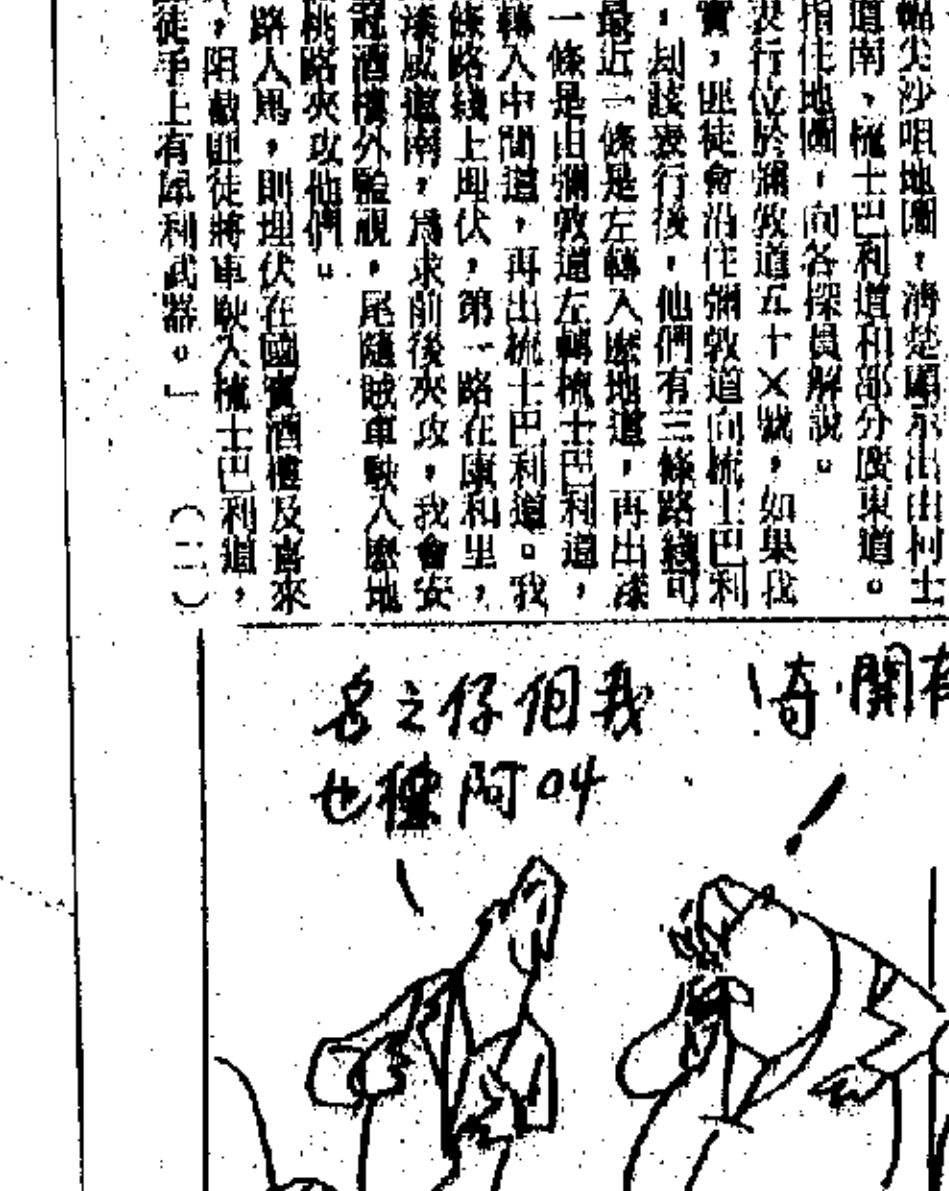 幅尖沙咀地圖，清楚顯示出由柯士
道南、梳士巴利道和部分漆咸道。
指住地圖，向各探員解說。
表行位於彌敦道五十X號，如果我
實，匪徒會沿住彌敦道向梳士巴利
，刧該表行後，他們有三條路綫可
最近一條是左轉入麽地道，再出漆
一條是由彌敦道左轉梳士巴利道，
轉入中間道，再出梳士巴利道。我
條路綫上埋伏，第一路在康和里，
漆咸道南，爲求前後夾攻，我會安
冠酒樓外監視，尾隨賊車駛入麽地
兆路夾攻他們。
路人馬，則埋伏在國賓酒樓及喜來
，阻截匪徒將車駛入梳士巴利道，
徒手上有犀利武器。」　（二）
有開奇！
我個仔之名
04阿也